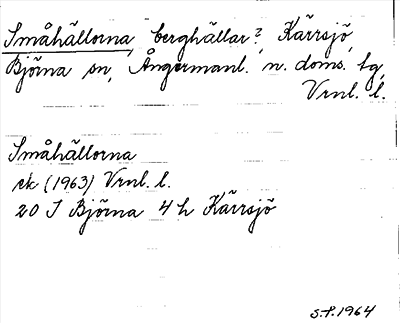 Småhällorna, berghällar?, Kärrsjö,
Björna sn, Ångermanl. n. doms. tg,
Vrnl. l.
Småhällorna
ek (1963) Vrnl. l.
20 I Björna 4 h Kärrsjö
S.P. 1964